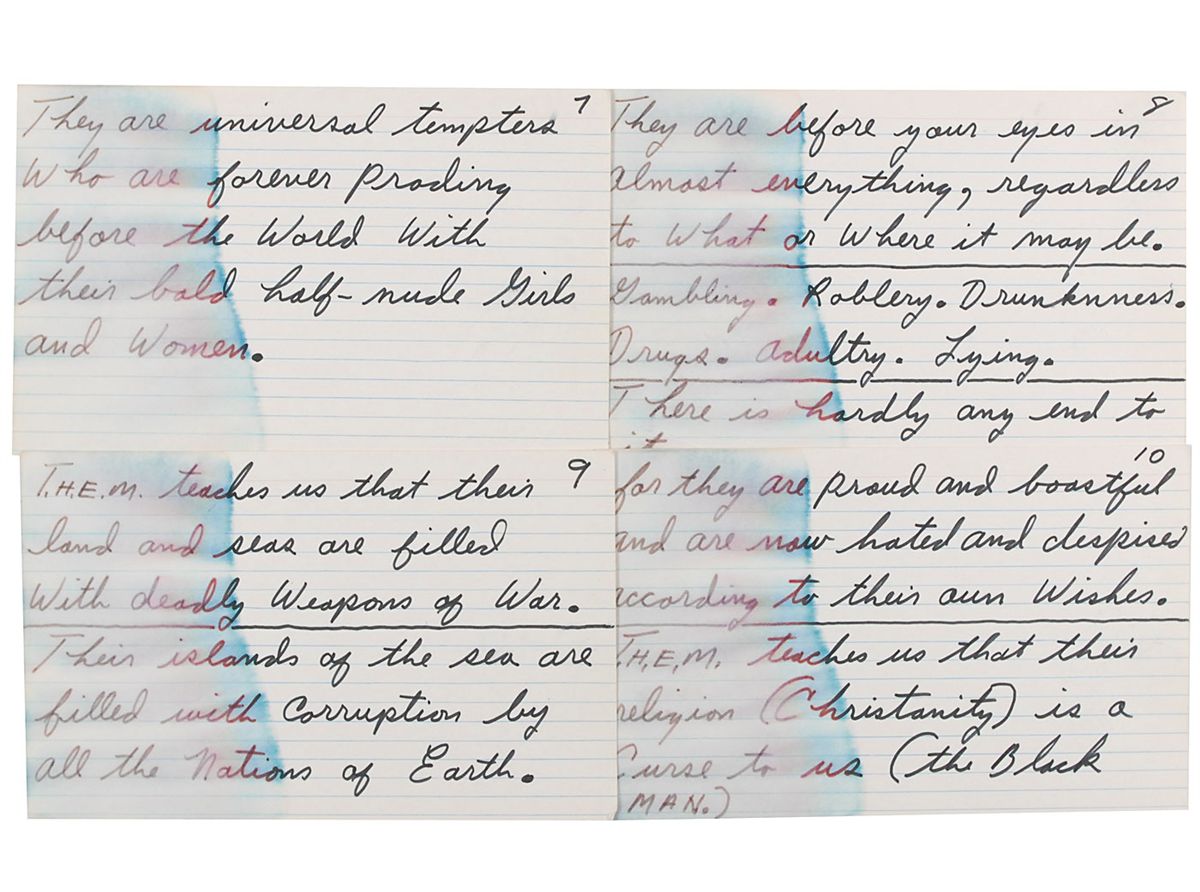 7
They are universal tempters
Who are forever Prading
before the World With
their bald half-nude Girls
and Women.
8
They are before your eyes in
almost everything, regardless
to What or Where it may be.
Gambling. Robbery. Drunknness.
Drugs. Adultry. Lying.
There is hardly any end to
it
9
T.H.E.M. teaches us that their
land and seas are filled
With deadly Weapons of War.
Their islands of the sea are
filled with Corruption by
all the Nations of Earth.
10
for they are Proud and boastful
and are now hated and despised
according to their own Wishes.
T.H.E.M. teaches us that their
religion (Christanity) is a
Curse to us (the Black
MAN.)